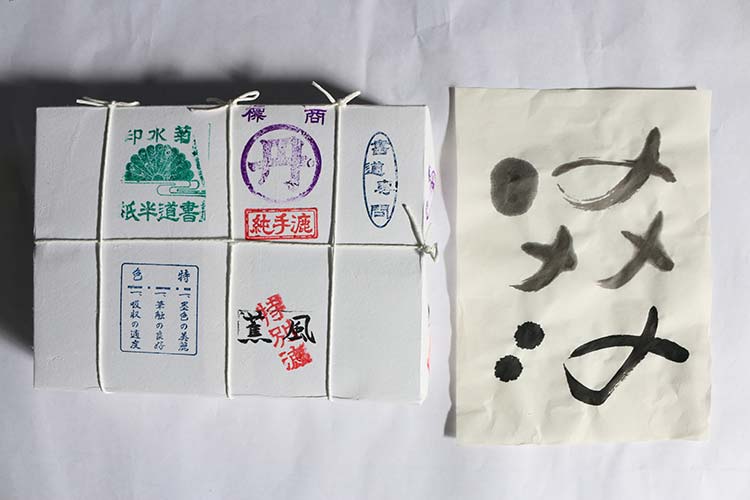 菊水印
書道半紙
商標
純手漉
特色
一、墨色の美麗
一、筆触の良好
一、吸収の適度
蕉風
特別漉